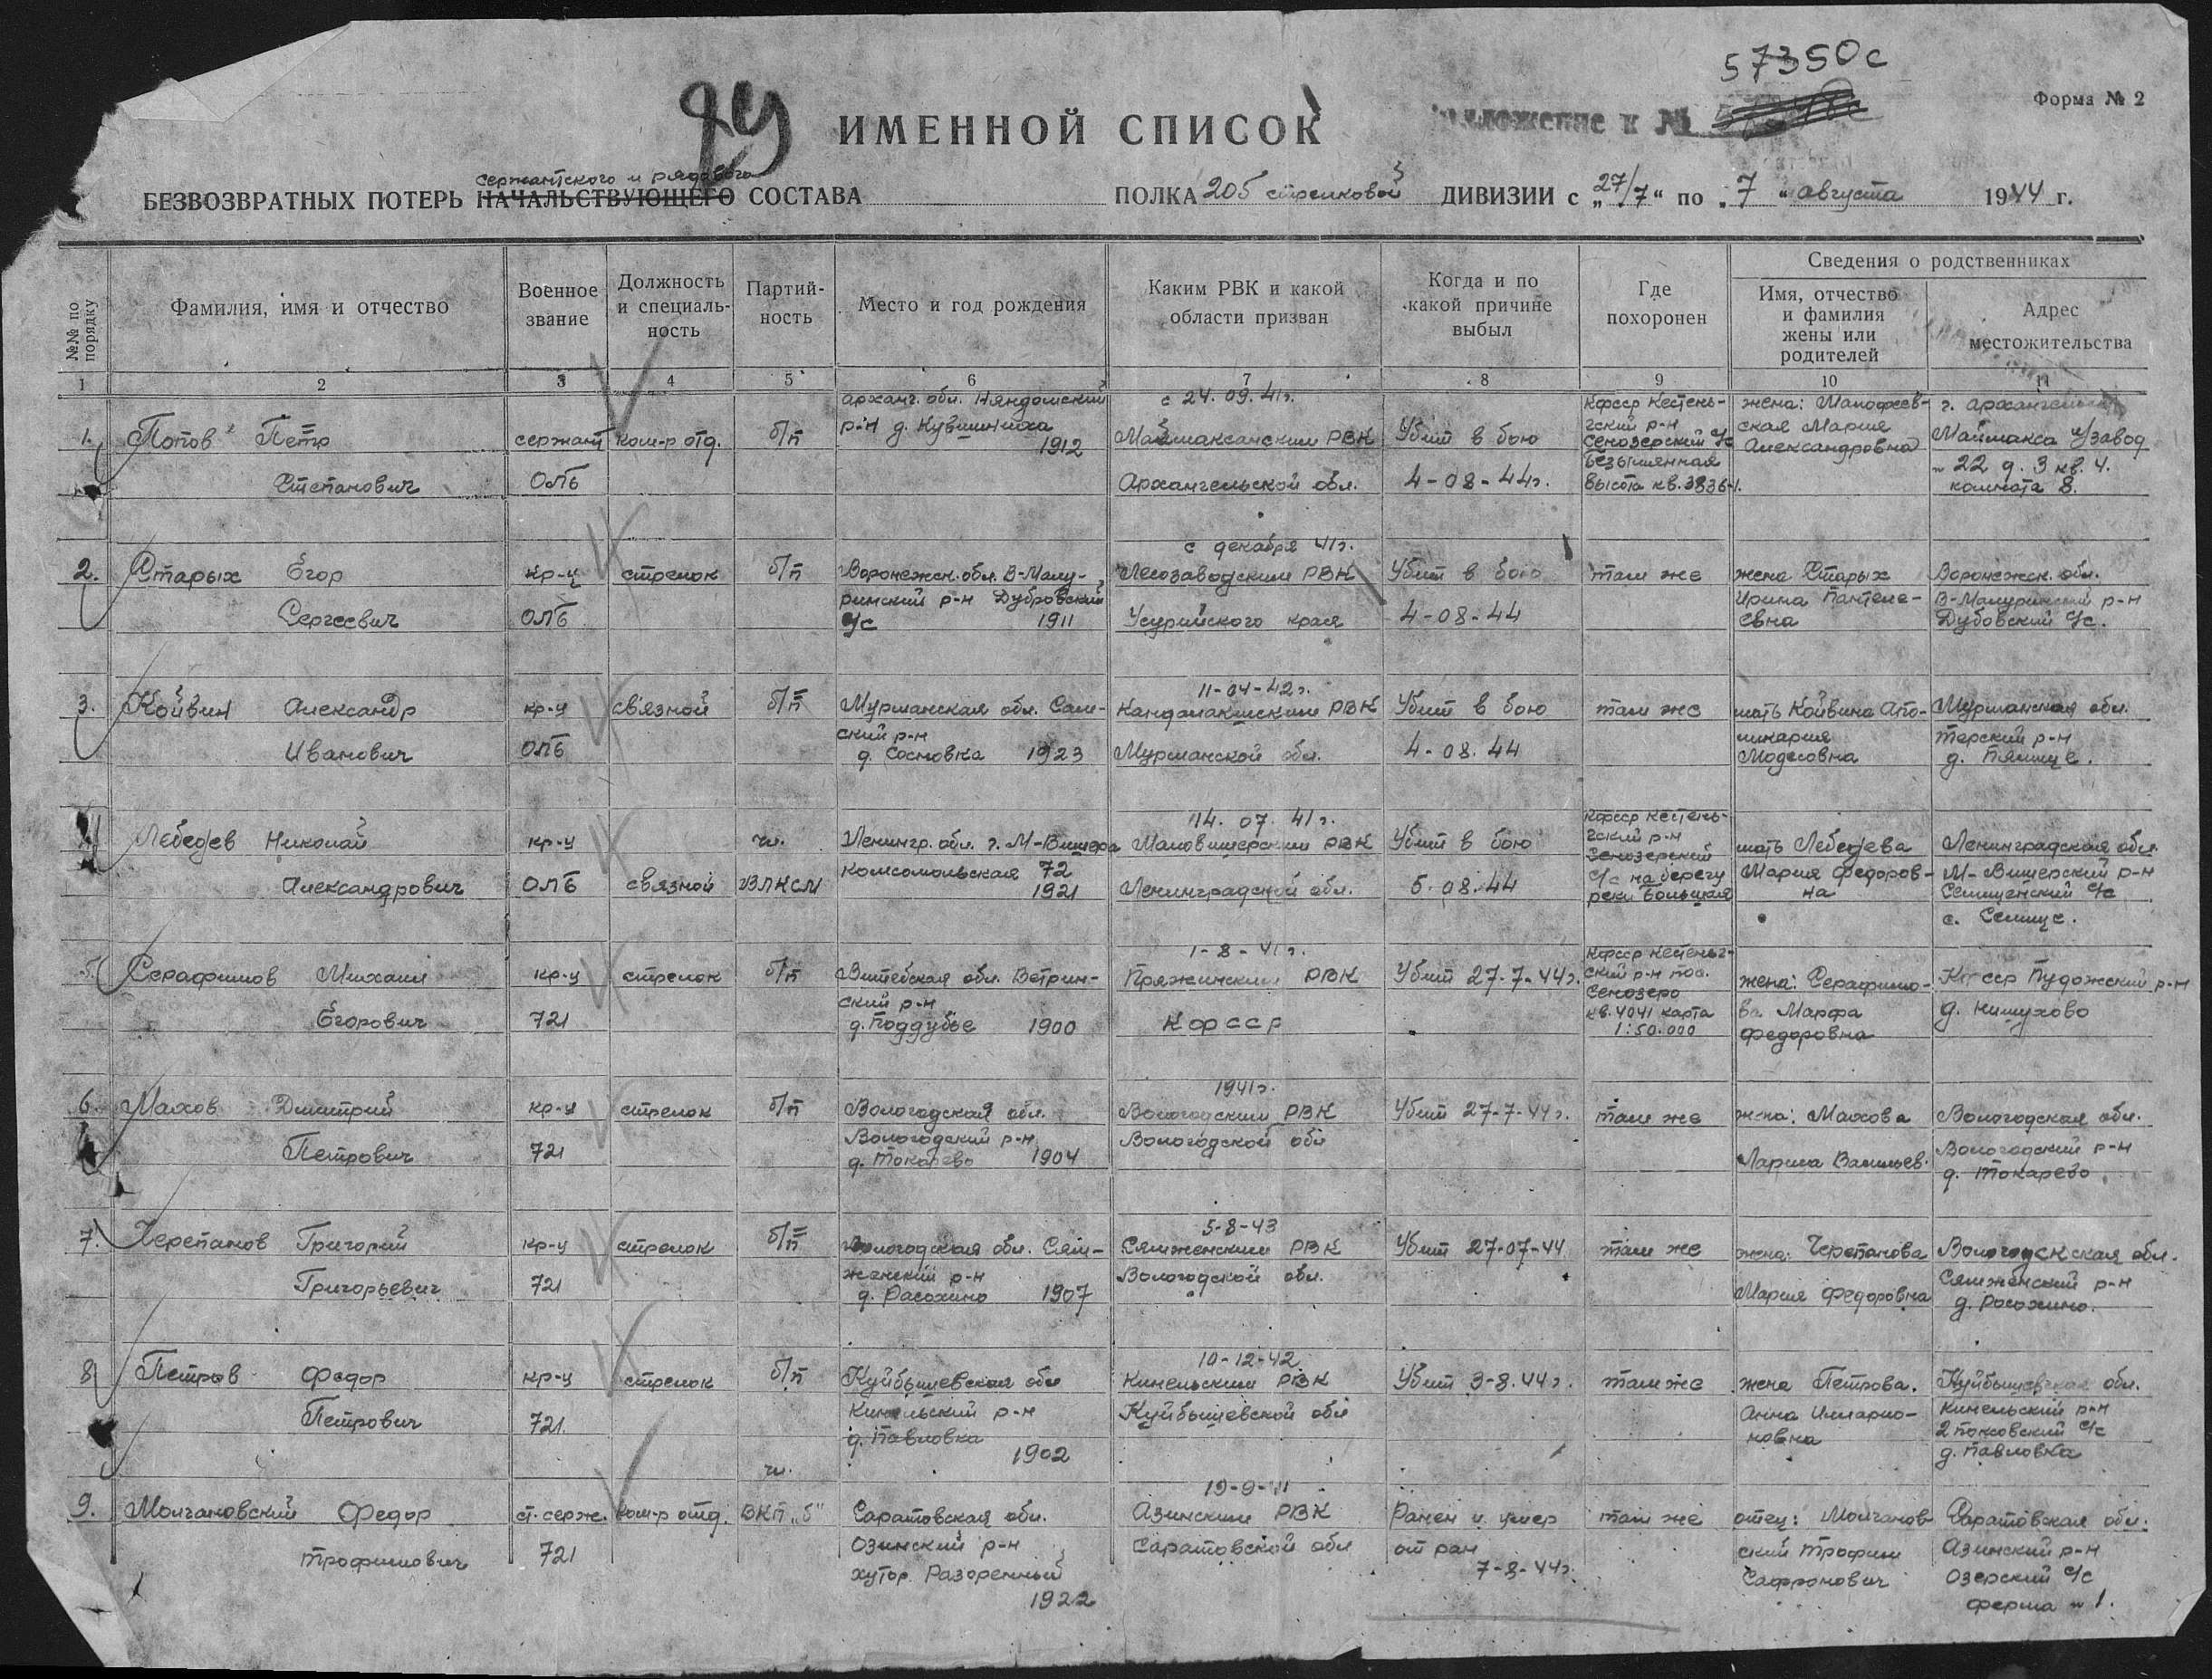 57350с
Форма № 2
94
ИМЕННОЙ СПИСОК
приложение к №
сержантского и рядового
БЕЗВОЗВРАТНЫХ ПОТЕРЬ НАЧАЛЬСТВУЮЩЕГО СОСТАВА ПОЛКА 205 стрелковой ДИВИЗИИ с „27/7“ по „7“ августа 1944 г.
№№ по порядку
Фамилия, имя и отчество
Военное звание
Должность и специаль-ность
Партий-ность
Место и год рождения
Каким РВК и какой области призван
Когда и по какой причине выбыл
Где похоронен
Сведения о родственниках
Имя, отчество и фамилия жены или родителей
Адрес местожительства
1 2 3 4 5 6 7 8 9 10 11
1. Попов Петр Степанович
сержант ОЛБ
ком-р отд.
б/п
арханг. обл. Няндомский
р-н д. Кувшиниха
1912
с 24.09.41г.
Маймаксанским РВК
Архангельской обл.
Убит в бою
4-08-44г.
Кфсср Кестень-
гский р-н
Сенозерский с/с
безымянная
высота кв. 3836-1.
жена: Малофеев-
ская Мария
Александровна
г. Архангельск
Маймакса л/завод
№ 22 д. 3 кв. 4.
комната 8.
2. Старых Егор Сергеевич
кр-ц ОЛБ
стрелок
б/п
Воронежск. обл. В-Маму-
ринский р-н Дубровский
с/с 1911
с декабря 41г.
Лесозаводским РВК
Усурийского края
Убит в бою
4-08-44
там же
жена Старых
Ирина Пантеле-
евна
Воронежск. обл.
В-Мамуринский р-н
Дубовский с/с.
3. Койвин Александр Иванович
кр-ц ОЛБ
связной
б/п
Мурманская обл. Саам-
ский р-н
д. Сосновка 1923
11-04-42г.
Кандалакшским РВК
Мурманской обл.
Убит в бою
4-08.44
там же
мать Койвина Апо-
линария
Модесовна
Мурманская обл.
Терский р-н
д. Пялице.
Лебедев Николай Александрович
кр-ц ОЛБ
связной
чл.
ВЛКСМ
Ленингр. обл. г. М-Вишера
Комсомольская 72
1921
14.07.41г.
Маловишерским РВК
Ленинградской обл.
Убит в бою
5.08.44
Кфсср Кестень-
гский р-н
Сенозерский
с/с на берегу
реки
мать Лебедева
Мария Федоров-
на
Ленинградская обл.
М-Вишерский р-н
Селищенский с/с
с. Селище.
5. Серафимов Михаил Егорович
кр-ц 721
стрелок
б/п
Витебская обл. Ветрин-
ский р-н
д. Поддубье 1900
1-8-41г.
Пряжинским РВК
Кфсср
Убит 27-7-44г.
Кфсср Кестеньг-
ский р-н пос.
Сенозеро
кв. 4041 карта
1:50.000
жена: Серафимо-
ва Марфа
Федоровна
Кфсср Пудожский р-н
д.
6. Махов Дмитрий Петрович
кр-ц 721
стрелок
б/п
Вологодская обл.
Вологодский р-н
д. Токарево 1904
1941г.
Вологодским РВК
Вологодской обл
Убит 27-7-44г.
там же
жена: Махова
Лариса Васильев.
Вологодская обл.
Вологодский р-н
д. Токарево
7. Черепанов Григорий Григорьевич
кр-ц 721
стрелок
б/п
Вологодская обл. Сям-
женский р-н
д. Расохино 1907
5-8-43
Сямженским РВК
Вологодской обл.
Убит 27-07-44
там же
жена: Черепанова
Мария Федоровна
Вологодскская обл.
Сямженский р-н
д. Росохино.
8 Петров Федор Петрович
кр-ц 721.
стрелок
б/п
Куйбышевская обл
Кинельский р-н
д. Павловка
1902
10-12-42
Кинельским РВК
Куйбышевской обл
Убит 3-8.44г.
там же
жена Петрова.
Анна Иларио-
новна
Куйбышевская обл.
Кинельский р-н
с/с
д. Павловка
9. Молчановский Федор Трофимович
ст. серж. 721
ком-р отд.
чл.
ВКП „б“
Саратовская обл.
Озинский р-н
хутор Разоренный
1922
Азинским РВК
Саратовской обл
Ранен и умер
от ран
7-8-44г.
там же
отец: Молчанов
ский Трофим
Сафронович
Саратовская обл.
Азинский р-н
Озерский с/с
ферма № 1.